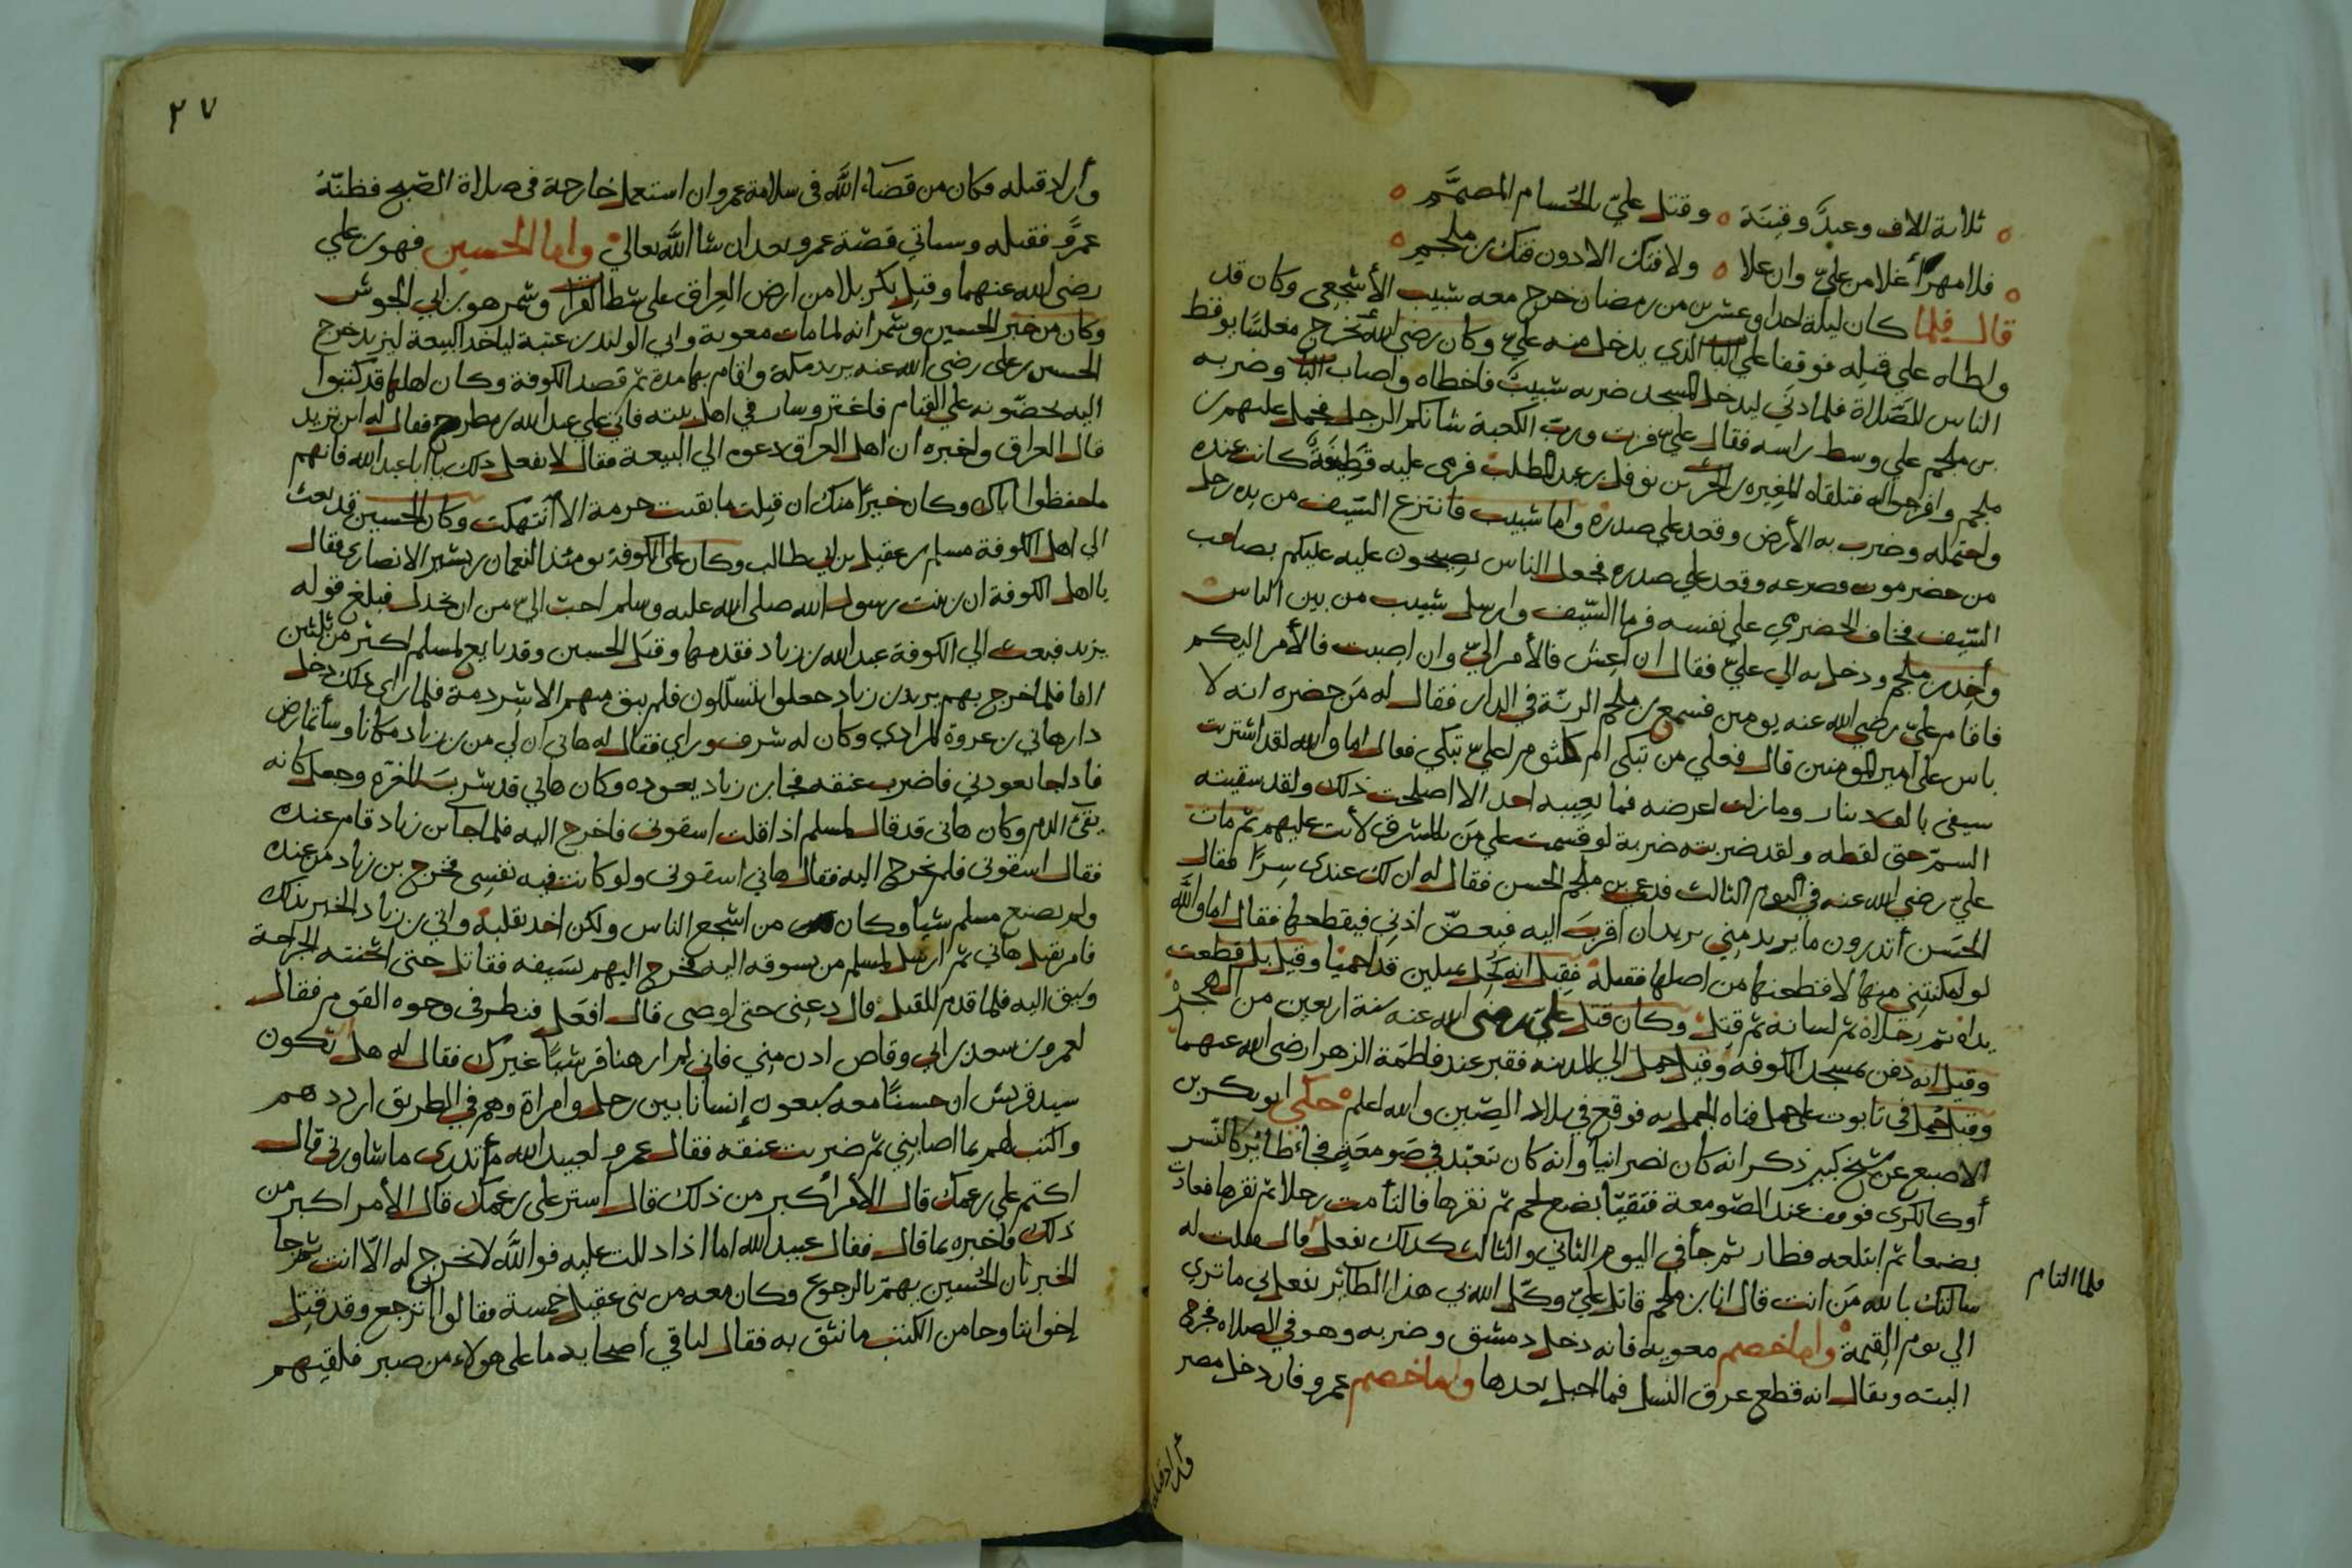 ثلاثة الاف وعبد وقينة وقتل علي بالحسام المصمم
فلا مهر أغلا من علي وان علا ولا فتك الا دون فتك بن ملجم
قال فلما كان ليلة احدا وعشرين من رمضان خرج معه شبيب الأشجعي وكان قد
واطاه علي قتله فوقفا علي الباب الذي يدخل منه علي وكان رضي الله يخرج مغلسا يوقظ
الناس للصلاة فلما دنى ليدخل المسجد ضربه شبيب فاخطاه واصاب الباب وضربه
بن ملجم علي وسط راسه فقال علي فزت ورب الكعبة شانكم الرجل فحمل عليهم بن
ملجم وافرجوا له فتلقاه المغيره بن الحرث بن نوفل بن عبد المطلب فرمى عليه قطيفة كانت عنده
واحتمله وضرب به الأرض وقعد علي صدره واما شبيب فانتزع السيف من يده رجل
من حضرموت وصرعه وقعد علي صدره فجعل الناس يصيحون عليه عليكم بصاحب
السيف فخاف الحضرمي علي نفسه فرما السيف وارسل شبيب من بين الناس
وأخذ بن ملجم ودخل به الي علي فقال ان اعش فالأمر الي وان اصبت فالأمر اليكم
فاقام علي رضي الله عنه يومين فسمع بن ملجم الرنة في الدار فقال له من حضره انه لا
باس على امير المومنين قال فعلي من تبكى ام كلثوم اعلي تبكي فقال اما والله لقد اشتريت
سيفي بالف دينار ومازلت اعرضه فما يعيبه احد الا اصلحت ذلك ولقد سقيته
السم حتى لفظه ولقد ضربته ضربة لو قسمت علي من بالمشرق لأتت عليهم ثم مات
علي رضي الله عنه في اليوم الثالث فدعي بن ملجم الحسن فقال له ان لك عندى سرا فقال
الحسن أتدرون ما يريد مني يريد ان اقرب اليه فيعض اذني فيقطعها فقال اما والله
لو امكنتني منها لاقتطعتها من اصلها فقتله فقيل انه كحل بميلين قد احميا وقيل بل قطعت
يداه ثم رجلاه ثم لسانه ثم قتل وكان قتل علي رضى الله عنه سنة اربعين من الهجرة
وقيل انه دفن بمسجد الكوفه وقيل حمل الي المدينه فقبر عند فاطمة الزهرا رضى الله عنهما
وقيل حمل في تابوت على جمل فتاه الجمل به فوقع في بلاد الصين والله اعلم حكي ابو بكر بن
الاصبع عن شيخ كبير ذكر انه كان نصرانيا وانه كان تعبد في صومعة فجاء طائر كالنسر
أو كالكركى فوقف عند الصومعة فتقيا بضع لحم ثم نقرها فالتأمت رجلا ثم نقرها فعادت
بضعا ثم ابتلعه فطار ثم جأ في اليوم الثاني والثالث كذلك يفعل قال فقلت له
سالتك بالله من انت قال انا بن ملجم قاتل علي وكل الله بي هذا الطائر يفعل بي ما تري
الي يوم القيمة واما خصم معويه فانه دخل دمشق وضربه وهو في الصلاه فجرح
اليته ويقال انه قطع عرق النسل فما احبل بعدها واما خصم عمرو فان دخل مصر
فلما التام
٢٧
وأراد قتله فكان من قضاء الله فى سلامة عمرو ان استعمل خارجة فى صلاة الصبح فظنه
عمرو فقتله وسياتي قصة عمرو بعد ان شا الله تعالي واما الحسين فهو بن علي
رضى الله عنهما وقتل بكربلا من ارض العراق على شط الفرات وشمر هو بن ابي الجوشن
وكان من خبر الحسين وشمر انه لما مات معوية وابي الوليد بن عتبة لياخذ البيعة ليزيد خرج
الحسين بن على رضى الله عنه يريد مكة واقام بها مدة ثم قصد الكوفة وكان اهلها قد كتبوا
اليه يحضونه علي القيام فاغتر وسار في اهل بيته فاتي علي عبد الله بن مطرح فقال له اين تريد
قال العراق واخبره ان اهل العراق دعوه الي البيعة فقال لا تفعل ذلك يا ابا عبد الله فانهم
ما حفظوا اباك وكان خيرا منك ان قتلت ما بقيت حرمة الا انتهكت وكان الحسين قد بعث
الي اهل الكوفة مسلم بن عقيل بن ابي طالب وكان على الكوفة يومئذ النعمان بن بشير الانصارى فقال
يا اهل الكوفة ان بن بنت رسول الله صلى الله عليه وسلم احب الي من ابن بحدل فبلغ قوله
يزيد فبعث الي الكوفة عبيد الله بن زياد فقدمها وقتل الحسين وقد بايع لمسلم اكثر من ثلثين
الفا فلما خرج بهم يريد بن زياد جعلوا يتسللون فلم يبق معهم الا شرذمة فلما راى ذلك دخل
دار هاني بن عروة المرادي وكان له شرف وراي فقال له هانى ان لي من بن زياد مكانا وسأتمارض
فاذا جا يعودني فاضرب عنقه فجا بن زياد يعوده وكان هاني قد شرب المغره وجعل كانه
يقئ الدم وكان هانى قد قال لمسلم اذا قلت اسقونى فاخرج اليه فلما جا بن زياد قام عنده
فقال اسقونى فلم يخرج اليه فقال هاني اسقونى ولو كانت فيه نفسى فخرج بن زياد من عنده
ولم يصنع مسلم شيا وكان من اشجع الناس ولكن اخذ بقلبه واتي بن زياد الخبر بذلك
فامر بقتل هاني ثم ارسل لمسلم من يسوقه اليه فخرج اليهم بسيفه فقاتل حتى اثخنته الجراحة
وسيق اليه فلما قدم للقتل قال دعنى حتى اوصى قال افعل فنظر فى وجوه القوم فقال
لعمرو بن سعد بن ابي وقاص ادن مني فاني لم ار هنا قرشيا غيرك فقال له هل تكون
سيد قريش ان حسينا معه سبعون إنسانا بين رجل وامراة وهم في الطريق ارددهم
واكتب لهم بما اصابني ثم ضربت عنقه فقال عمرو لعبيد الله أتدرى ما شاورنى قال
اكتم علي بن عمك قال الأمر أكبر من ذلك قال استر على بن عمك قال الأمر اكبر من
ذلك فاخبره بما قال فقال عبيد الله اما اذا دللت عليه فوالله لا يخرج له الا انت ثم جا
الخبر بان الحسين يهم بالرجوع وكان معه من بنى عقيل خمسة فقالوا أترجع وقد قتل
إخوانا وجا من الكتب ما نثق به فقال لباقي أصحابه ما على هولاء من صبر فلقيهم